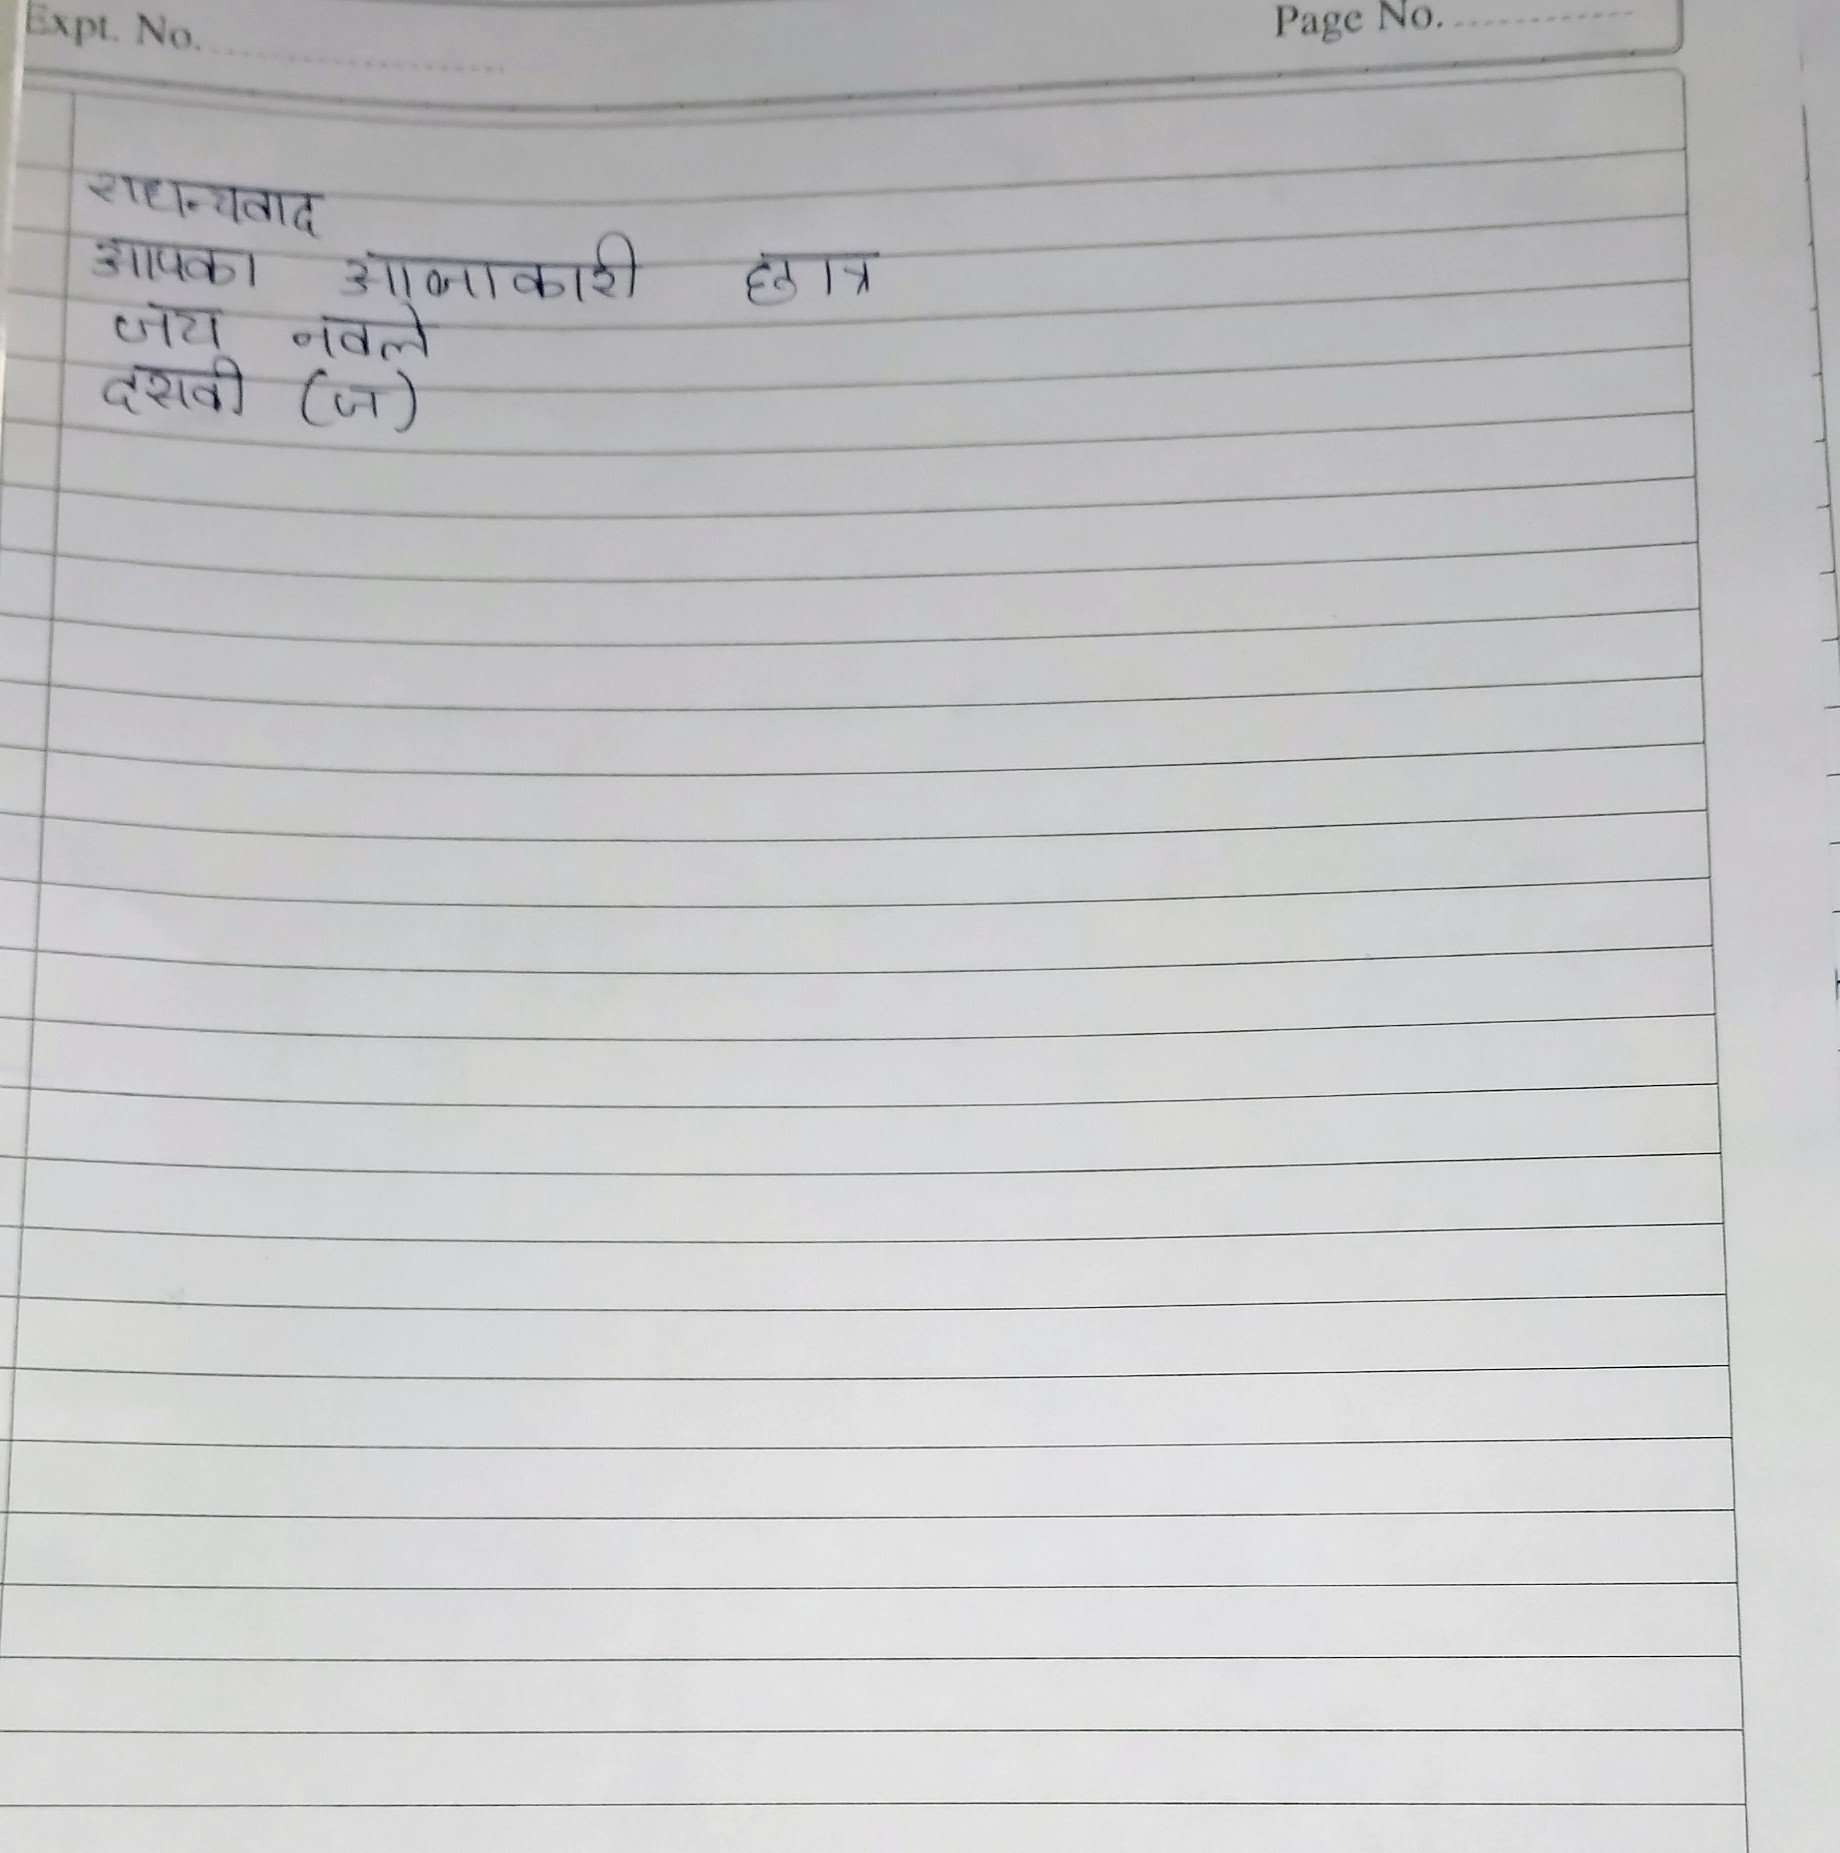 Expt. No.
Page No.
सधन्यवाद
आपका आज्ञाकारी छात्र
जय नवले
दसवी (ज)